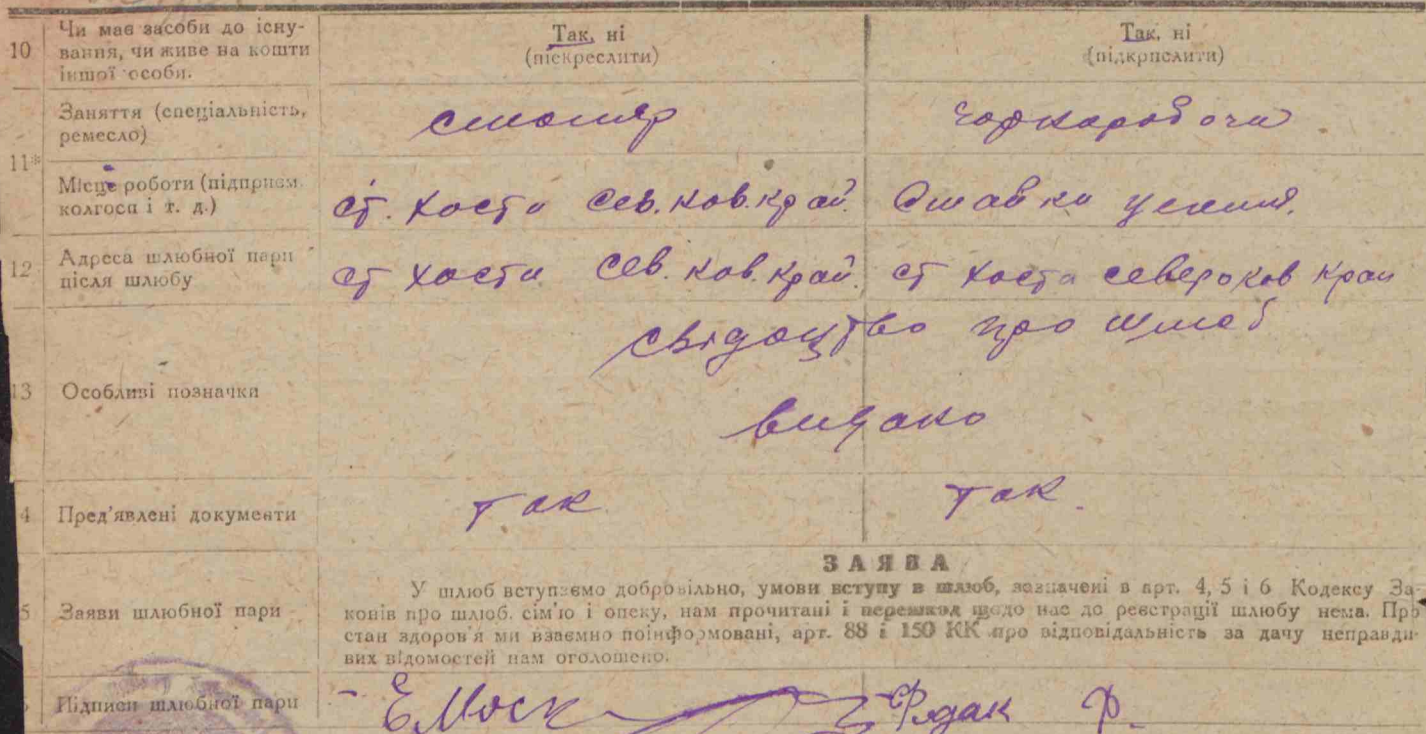 10 Чи має засоби до існу-
вання, чи живе на кошти
іншої особи.
Так, ні
(піскреслити)
Так, ні
(підкрпслити)
11*
Заняття (спеціальність,
ремесло)
столяр
чорноробоча
Місце роботи (підприєм.
колгосп і т. д.)
ст. Хоста Сев. Ков. край.
12 Адреса шлюбної пари
після шлюбу
ст Хоста Сев. Ков. край.
ст Хоста Северо Ков край
13 Особливі позначки
свідоцтво про шлюб
видано
4 Пред'явлені документи
так
так.
ЗАЯВА
5 Заяви шлюбної пари
У шлюб вступаємо добровільно, умови вступу в шлюб, зазначені в арт. 4, 5 і 6 Кодексу За-
конів про шлюб. сім'ю і опеку, нам прочитані і перешкод щодо нас до реєстрації шлюбу нема. Про
стан здоров'я ми взаємно поінформовані, арт. 88 і 150 КК про відповідальність за дачу неправди-
вих відомостей нам оголошено.
Підписи шлюбної пари
ЕМоск